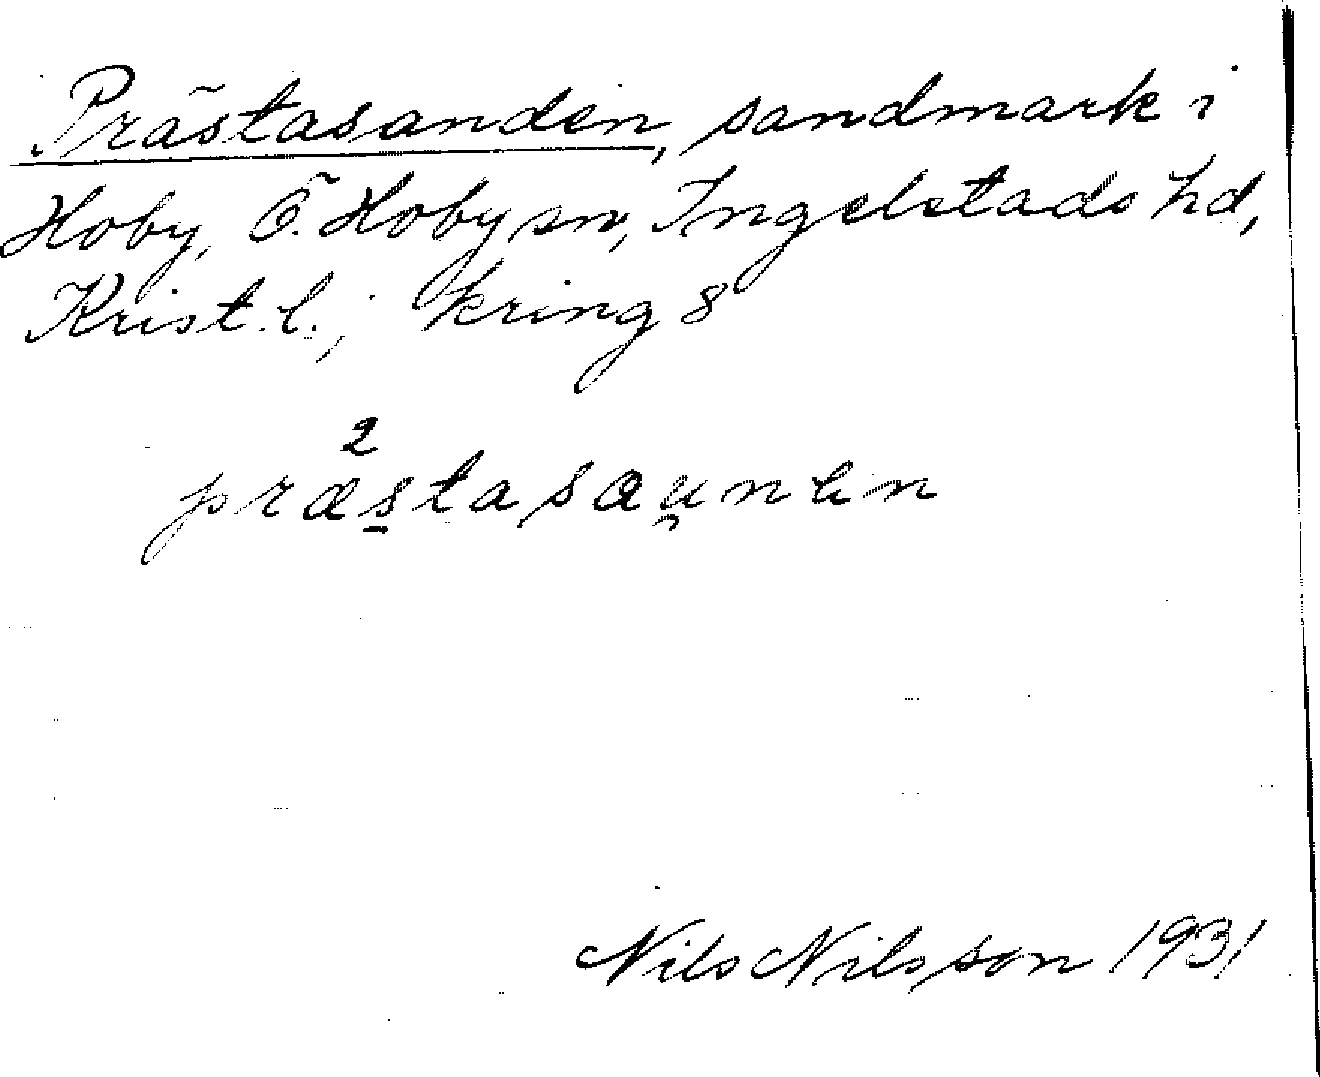 Prästasanden, sandmark i
Hoby, Ö. Hoby sn, Ingelstads hd,
Krist. l.; kring 8
2
præstasaunen
Nils Nilsson 1931